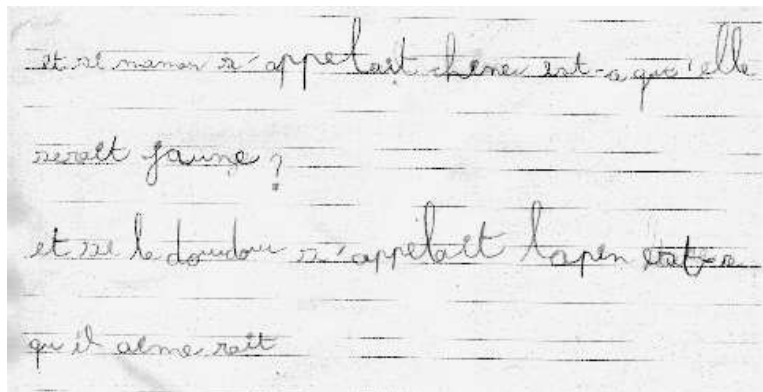 et si maman s'appelait chine est-a qu'elle
serait jaune ?
et si le doudou s'appelait lapin est-s
qu'il aime rait